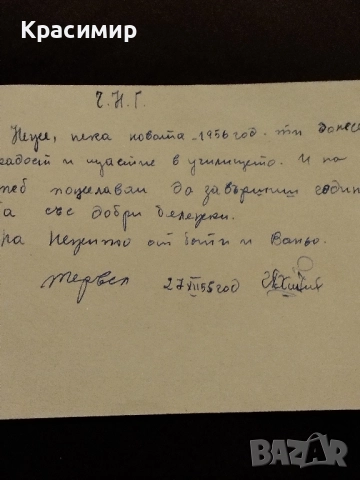 Красимир
Ч. Н. Г.
Нецке, нека новата 1956 год. ти донесе
радост и щастие в училището. И на
теб пожелавам да завършиш година
та със добри бележки.
На Неценцо от бати и Ваньо.
Тервел 27 XII 55 год
BAZAR